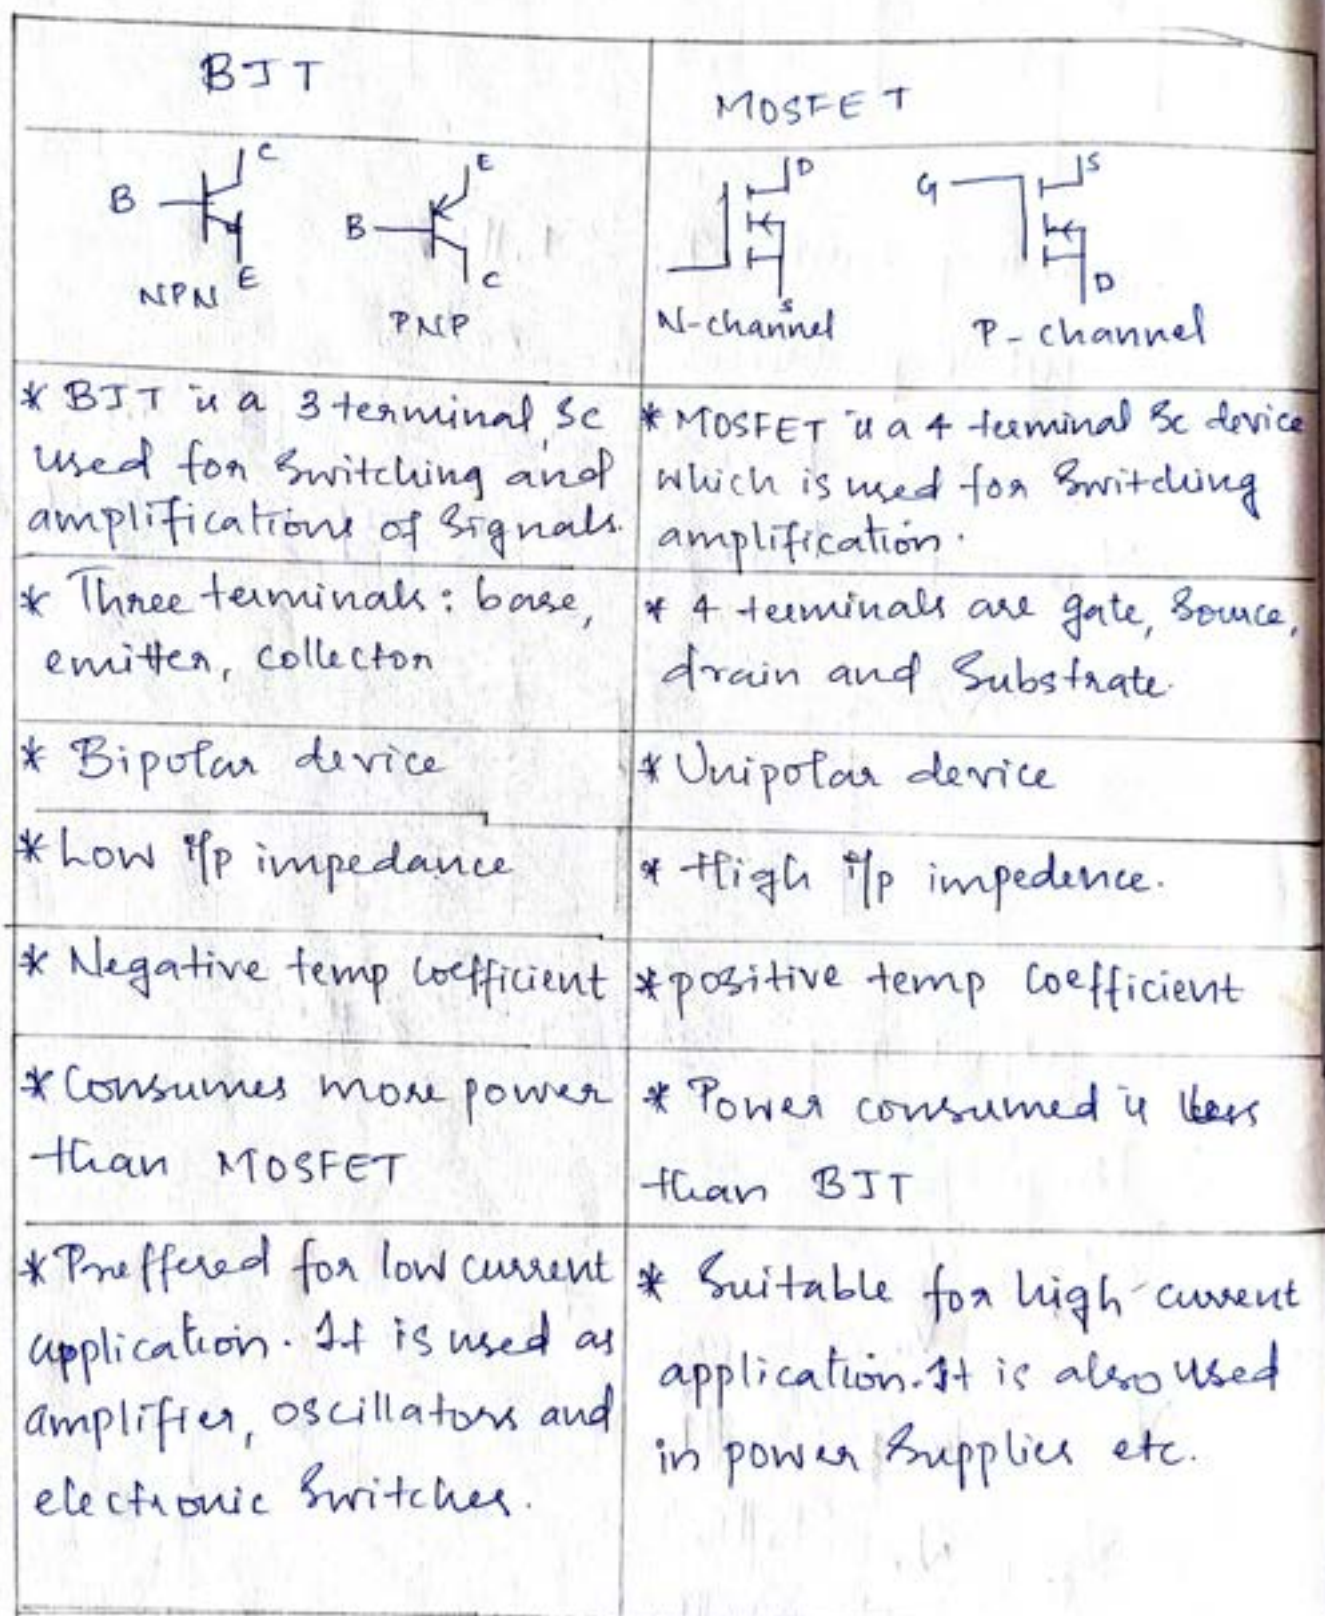 BJT
MOSFET
C
B
E
NPN
E
B
C
PNP
D
S
N-channel
G
S
D
P-channel
* BJT is a 3 terminal Sc
used for Switching and
amplifications of Signals.
* MOSFET is a 4 terminal Sc device
which is used for Switching
amplification.
* Three terminals: base,
emitter, collector
* 4 terminals are gate, Source,
drain and Substrate.
* Bipolar device
* Unipolar device
* Low i/p impedance
* High i/p impedence.
* Negative temp coefficient
* positive temp coefficient
* Consumes more power
than MOSFET
* Power consumed is less
than BJT
* Preffered for low current
application. It is used as
amplifier, oscillators and
electronic Switches.
* Suitable for high current
application. It is also used
in power Supplies etc.